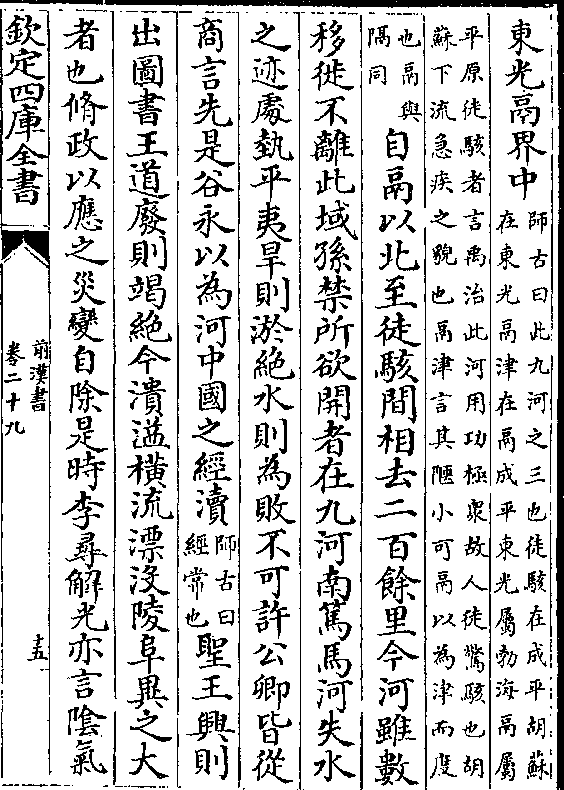 東光鬲界中
師古曰此九河之三也徒駭在成平胡蘇
在東光鬲津在鬲成平東光屬勃海鬲屬
平原徒駭者言禹治此河用功極衆故人徒驚駭也胡
蘇下流急疾之貌也鬲津言其陿小可鬲以為津而度
也鬲與
隔同
自鬲以北至徒駭間相去二百餘里今河雖數
移徙不離此域孫禁所欲開者在九河南篤馬河失水
之迹處埶平夷旱則淤絶水則為敗不可許公卿皆從
商言先是谷永以為河中國之經瀆
師古曰
經常也
聖王興則
出圖書王道廢則竭絶今潰溢橫流漂沒陵阜異之大
者也脩政以應之災變自除是時李尋解光亦言隂氣
欽定四庫全書
前漢書
卷二十九
十五